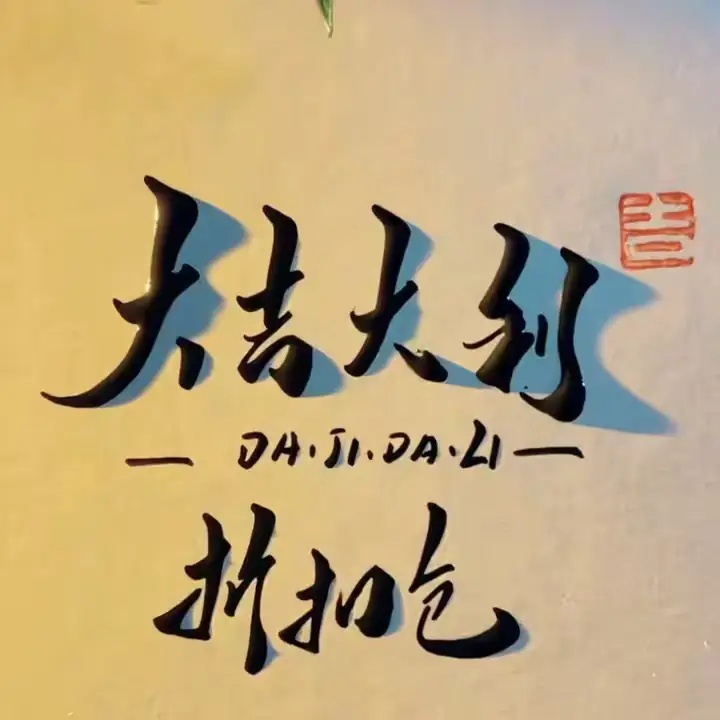 大吉大利
DA·JI·DA·LI
折扣仓